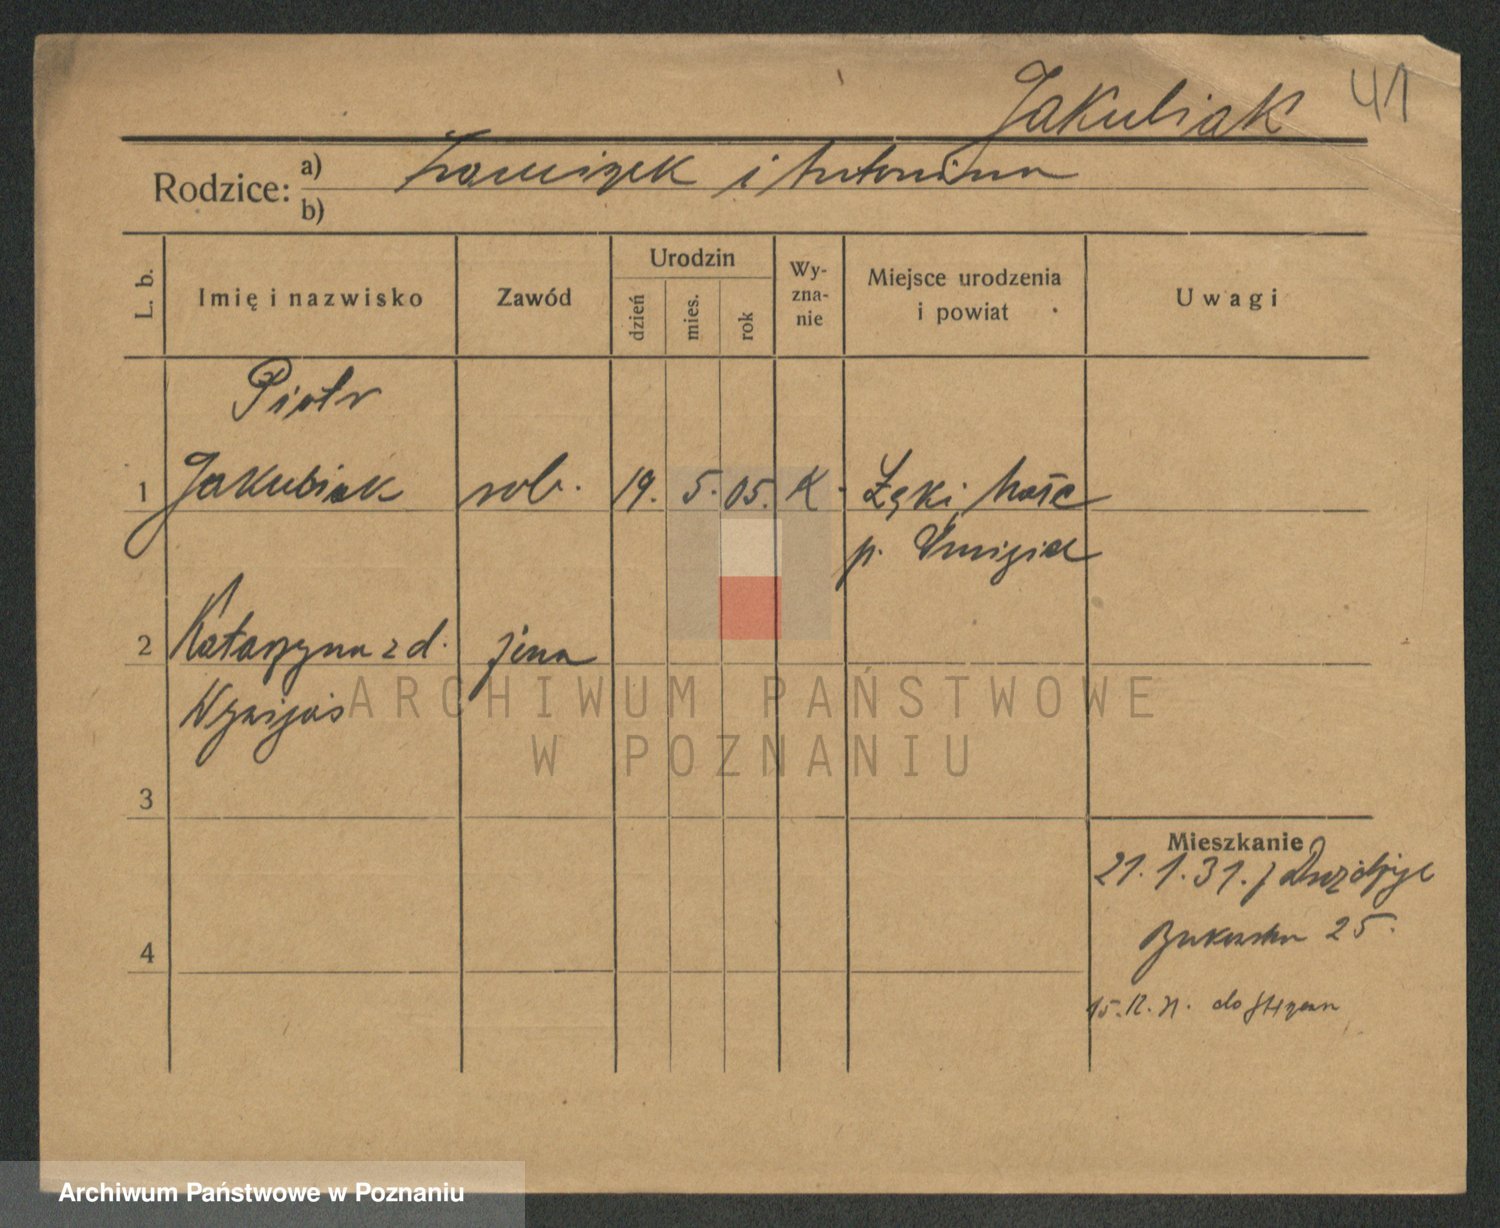 Jakubiak 41
Rodzice: a) Franciszek i Antonina
b)
L. b. Imię i nazwisko Zawód Urodzin dzień mies. rok Wy-zna-nie Miejsce urodzenia i powiat Uwagi
Piotr
1 Jakubiak rob. 19. 5. 05. K. Łęki Małe
p. Śmigiel
2 Katarzyna z d. żona
3
Mieszkanie
21.1.31. z
Bukowska 25.
4
15. do
ARCHIWUM PAŃSTWOWE
W POZNANIU
Archiwum Państwowe w Poznaniu